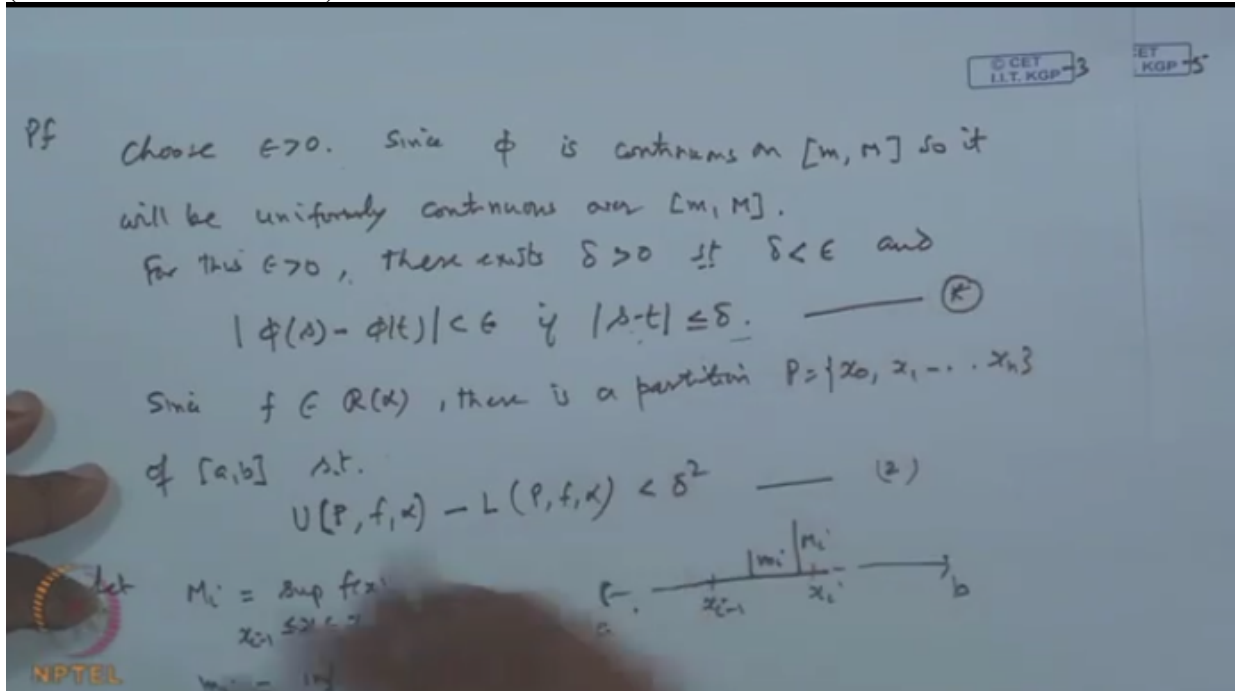 © CET
I.I.T. KGP -3
CET
KGP -5
Pf Choose ϵ>0. Since ϕ is continuous on [m, M] so it
will be uniformly continuous over [m, M].
For this ϵ>0, there exists δ>0 st δ<ϵ and
|ϕ(s) - ϕ(t)| < ϵ if |s-t| ≤ δ. —— (*)
Since f ∈ R(α), there is a partition P = {x₀, x₁ - . . xₙ}
of [a,b] s.t.
U(P, f, α) - L(P, f, α) < δ² —— (2)
Let Mᵢ = sup f(x)
xᵢ₋₁ ≤ x ≤
mᵢ = inf
mᵢ Mᵢ
a xᵢ₋₁ xᵢ b
NPTEL